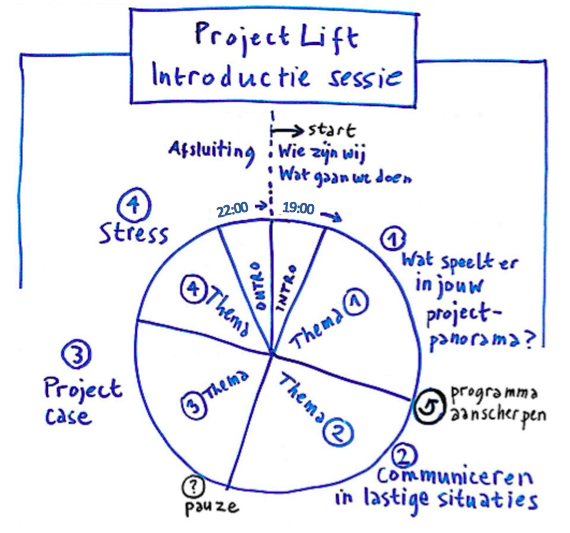 Project Lift
Introductie sessie
start
Afsluiting
Wie zijn wij
Wat gaan we doen
22:00
19:00
4
Stress
1
Wat speelt er
in jouw
project-
panorama?
OUTRO
INTRO
4 Thema
Thema 1
3
Project
case
3 Thema
Thema 2
5
programma
aanscherpen
2
Communiceren
in lastige situaties
?
pauze